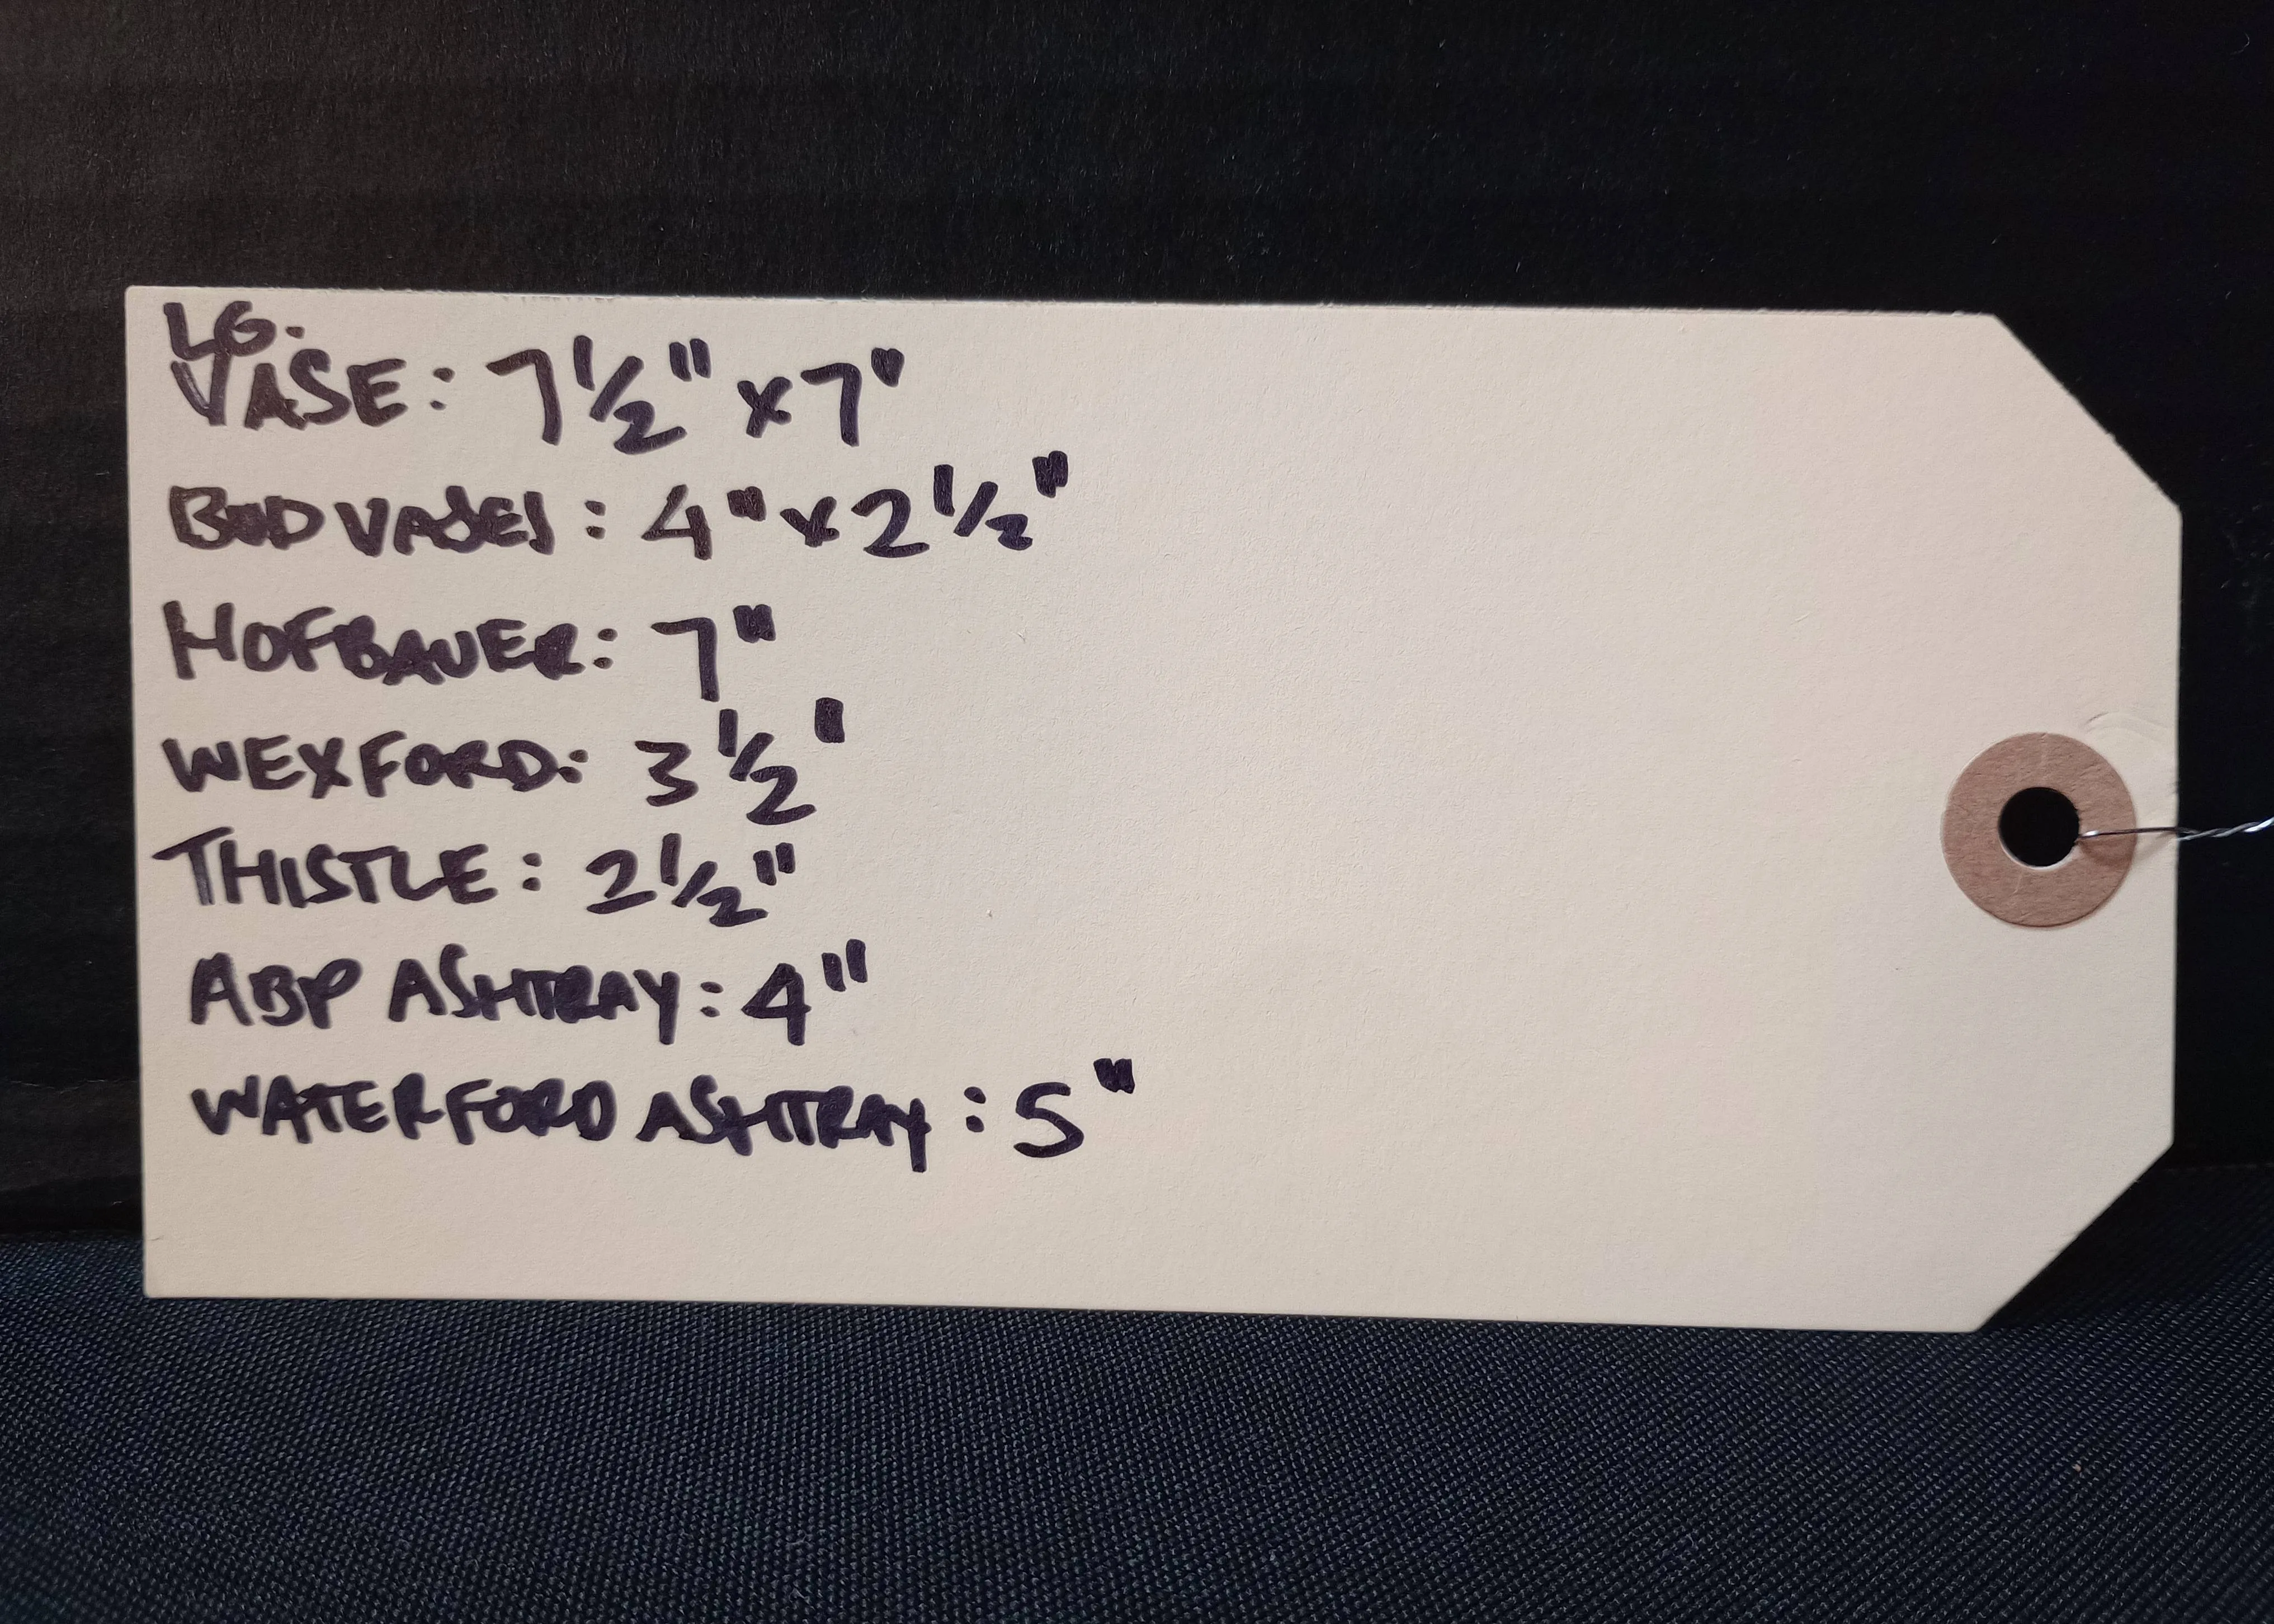 LG.
VASE: 7 1/2" x 7"
BUD VASES: 4" x 2 1/2"
HOFBAUER: 7"
WEXFORD: 3 1/2"
THISTLE: 2 1/2"
ABP ASHTRAY: 4"
WATERFORD ASHTRAY: 5"